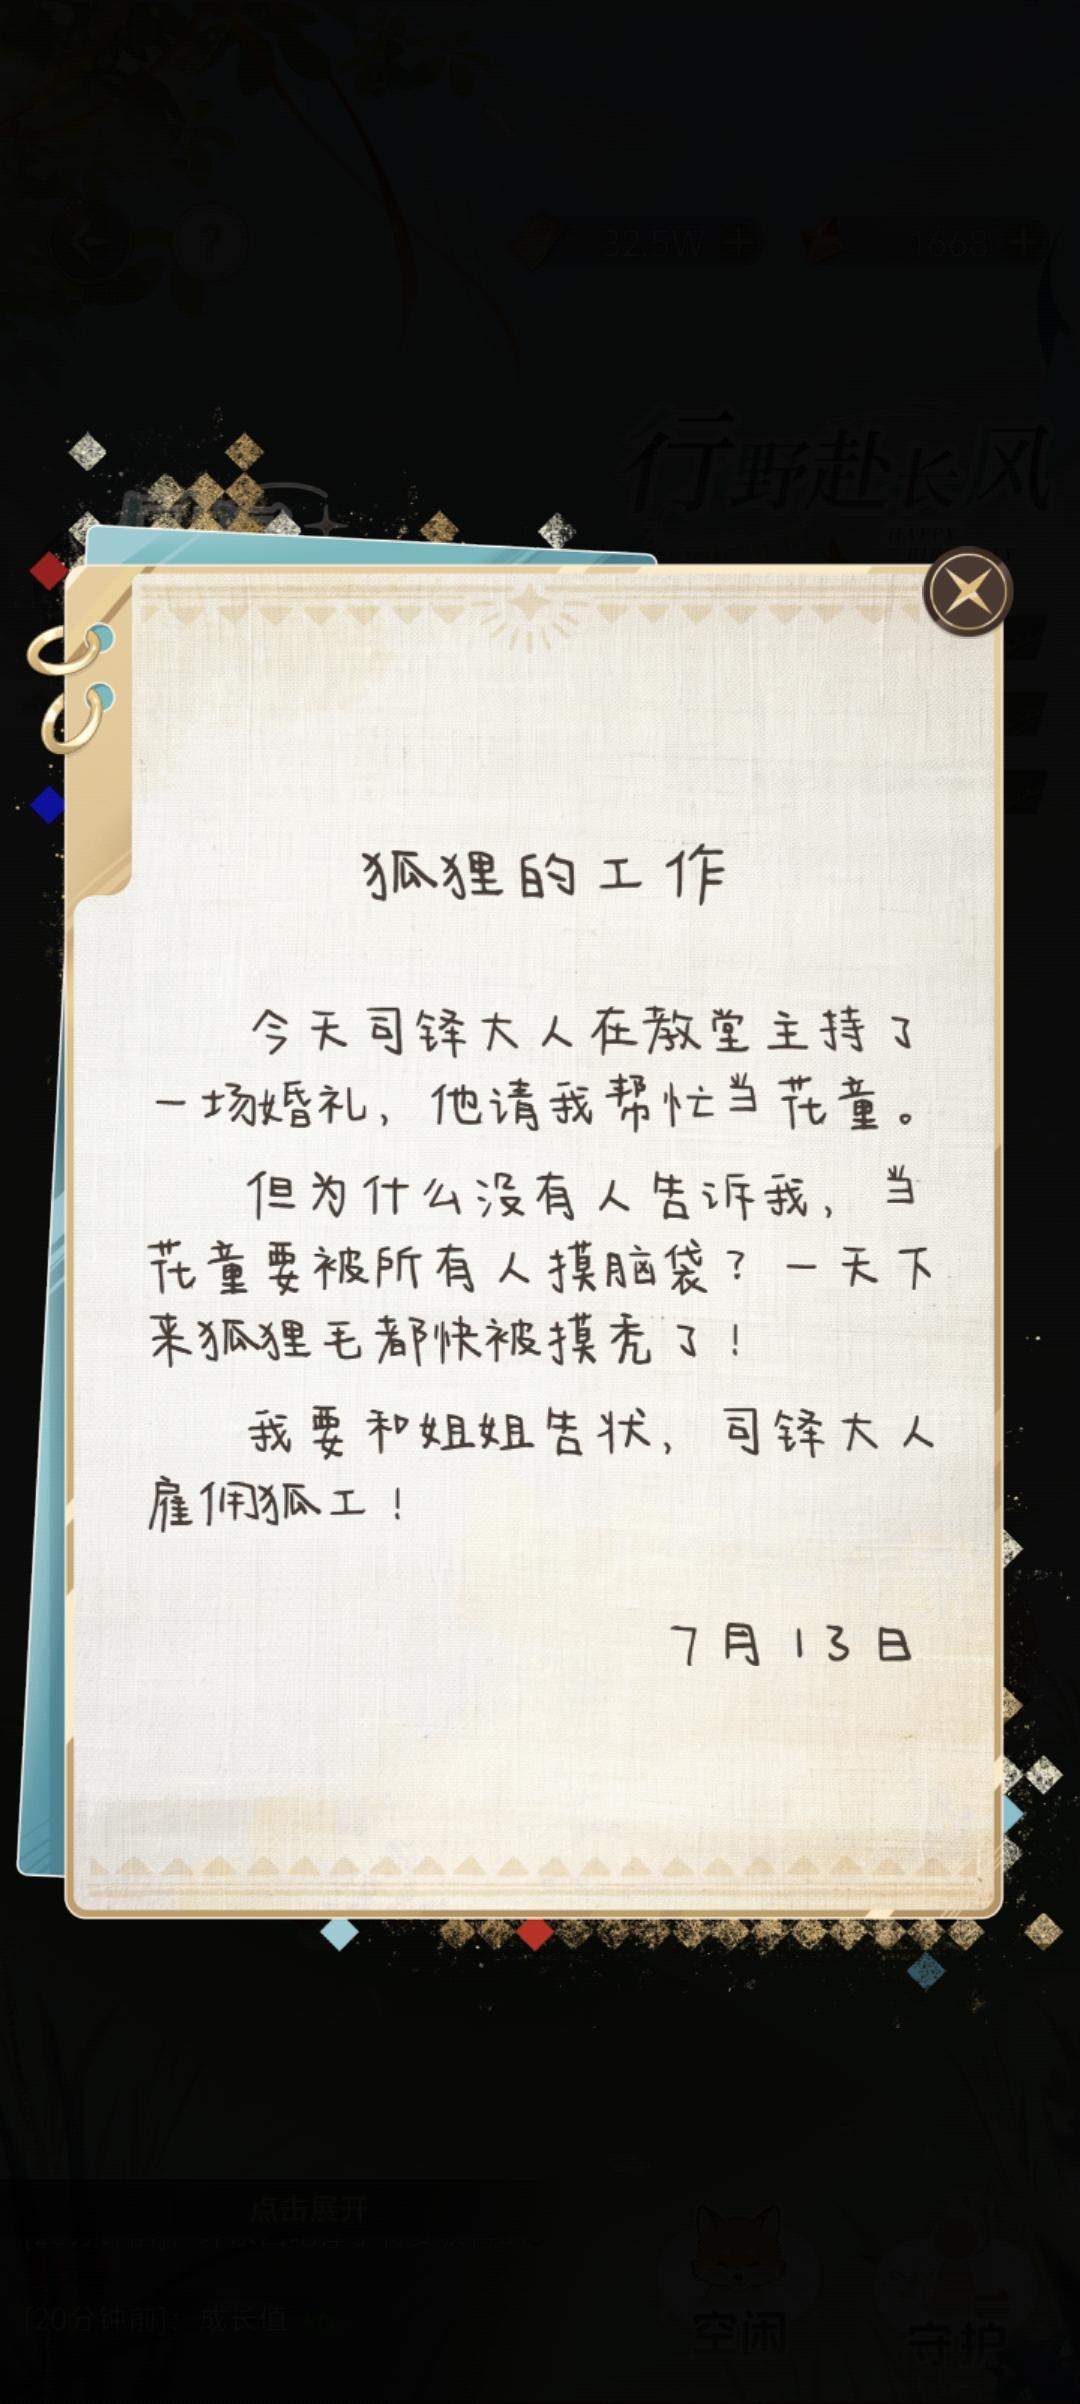 32.5W
1668
行野赴长风
HAPPY
狐狸的工作
今天司铎大人在教堂主持了
一场婚礼，他请我帮忙当花童。
但为什么没有人告诉我，当
花童要被所有人摸脑袋？一天下
来狐狸毛都快被摸秃了！
我要和姐姐告状，司铎大人
雇佣狐工！
7月13日
点击展开
[20分钟前]：成长值
空闲
守护